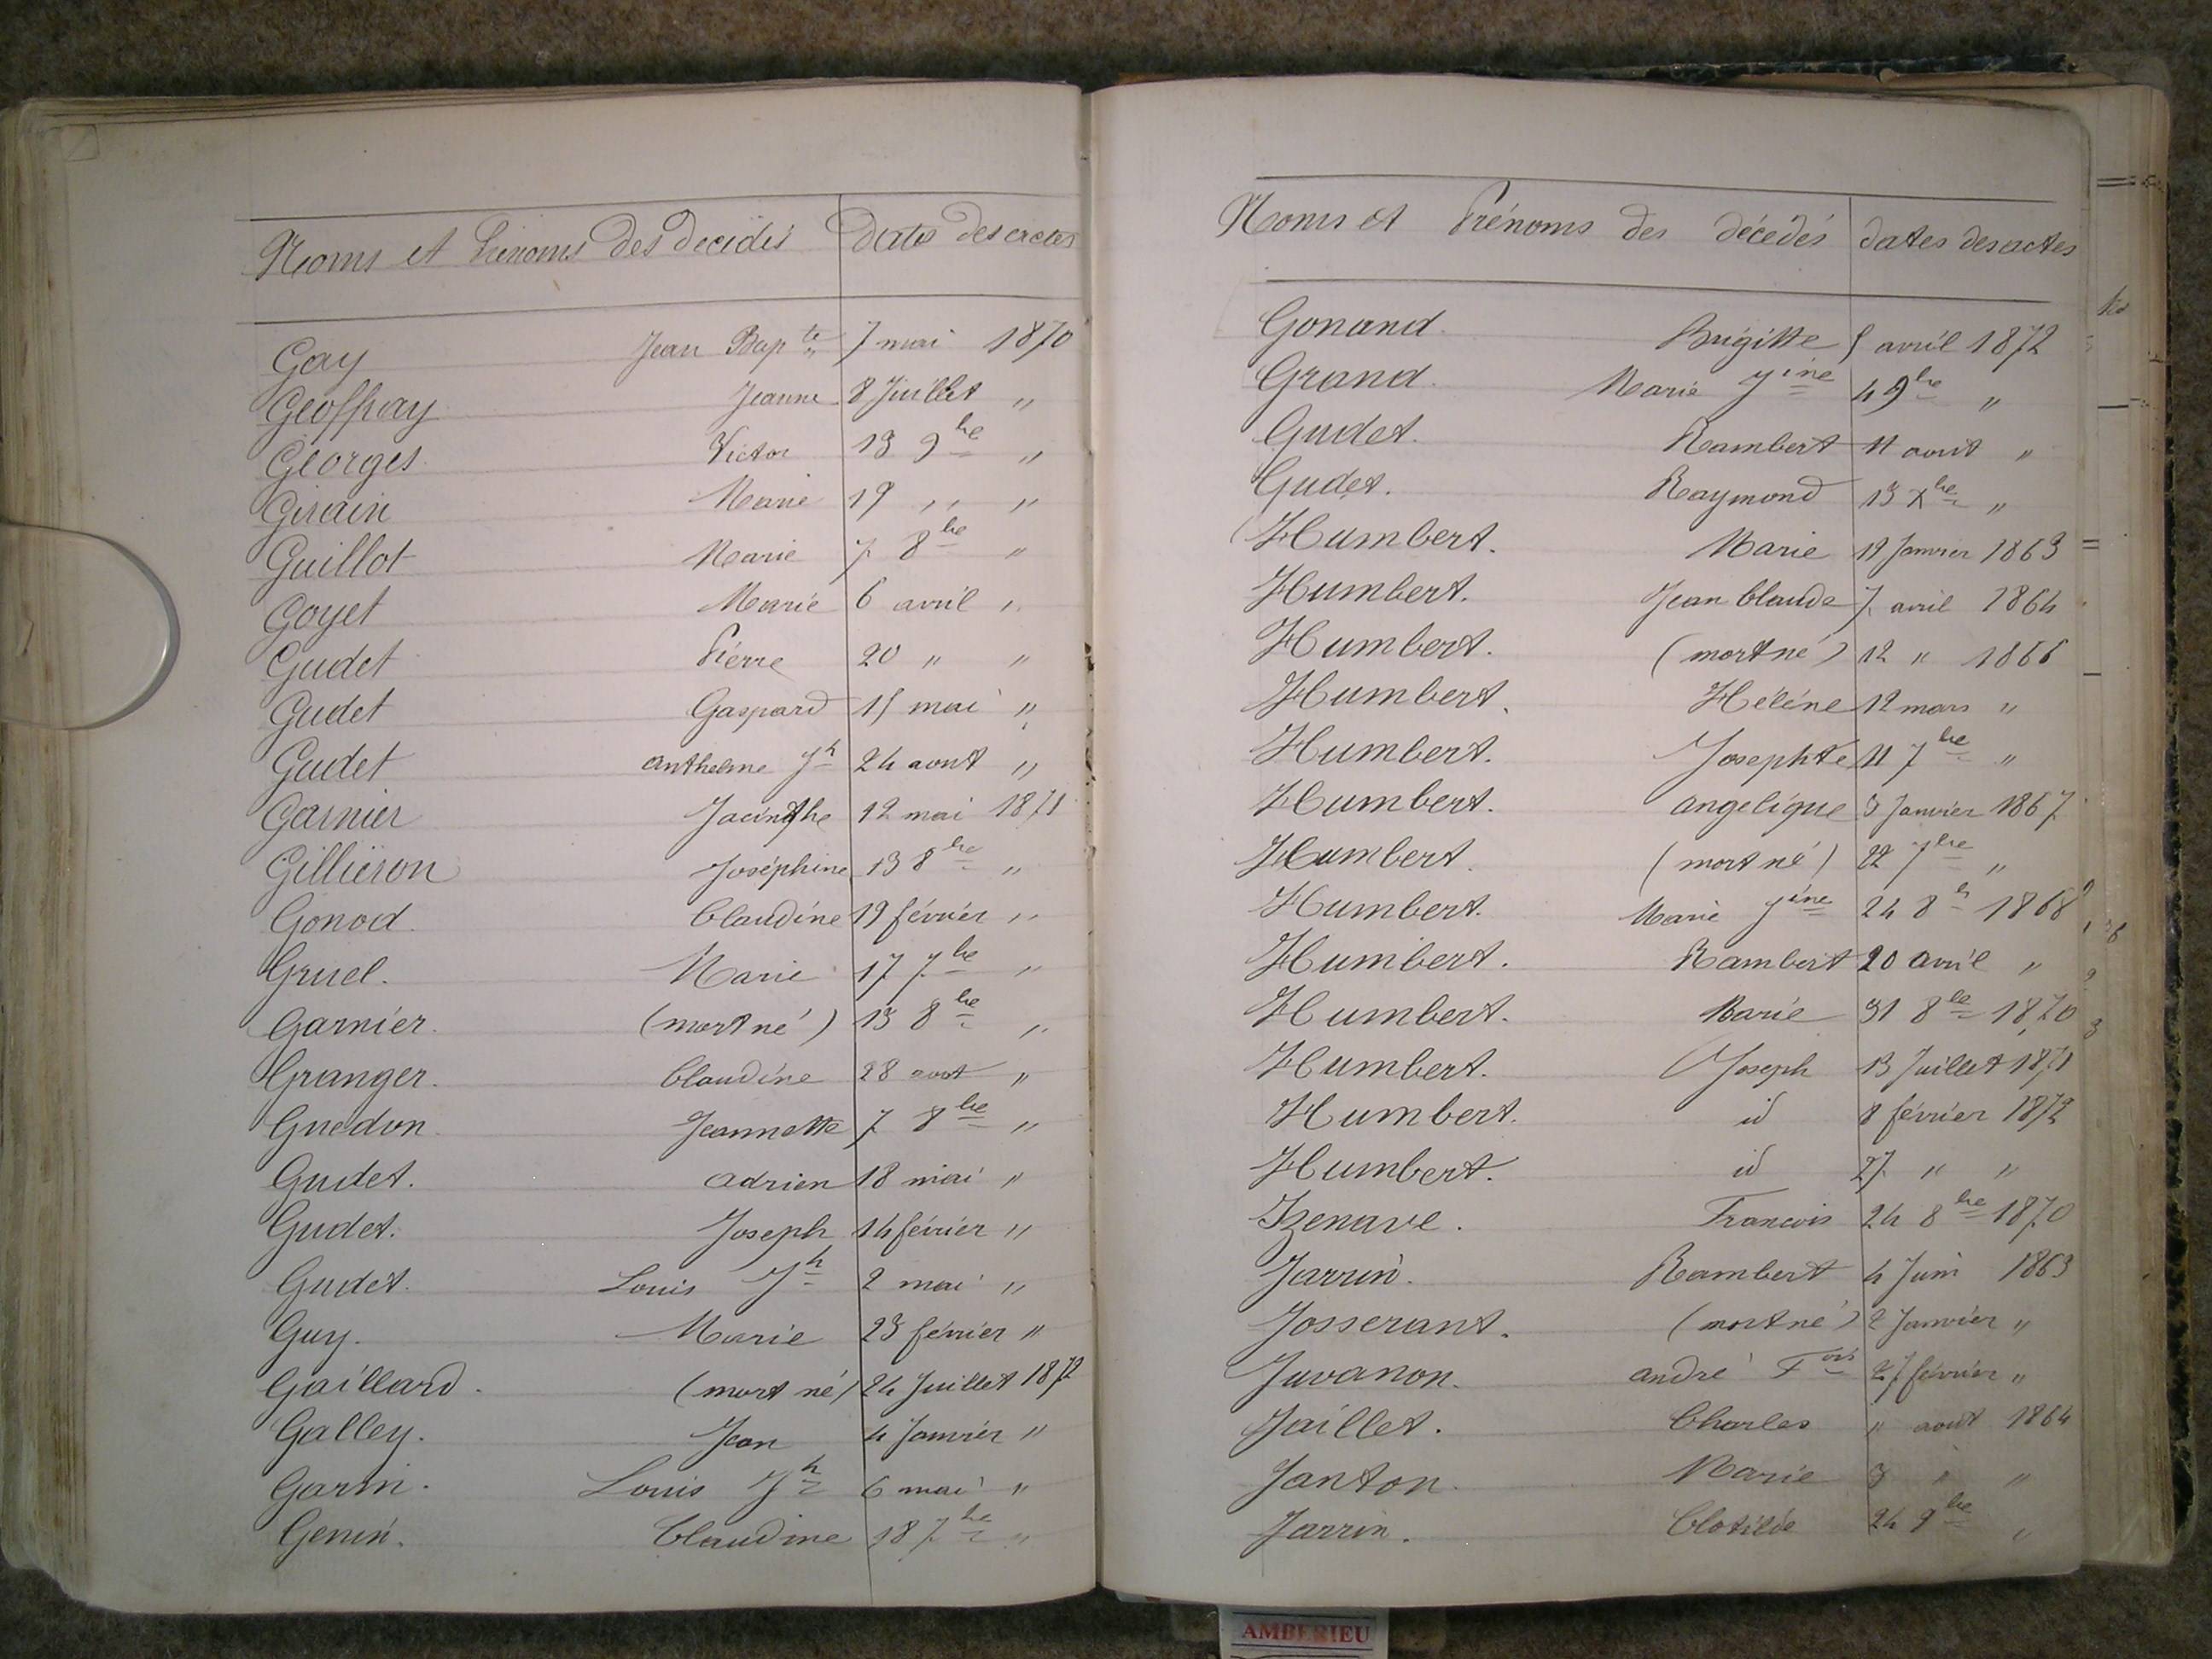 Noms et Prénoms des décédés dates des actes
Gay Jean Bapte 7 mai 1870
Geoffray Jeanne 8 Juillet "
Georges Victor 13 9bre "
Girain Marie 19 " "
Guillot Marie 7 8bre "
Goyet Marie 6 avril "
Gudet Pierre 20 " "
Gudet Gaspard 15 mai "
Gudet anthelme Jh 24 aout "
Garnier Jacinthe 12 mai 1871
Gilliéron Joséphine 13 8bre "
Gonod Claudine 19 février "
Gruel. Marie 17 7bre "
Garnier. (mort né) 13 8bre "
Granger. Claudine 28 aout "
Guédon Jeannette 7 8bre "
Gudet. adrien 18 mai "
Gudet. Joseph 14 février "
Gudet. Louis Jh 2 mai "
Guy. Marie 23 février "
Gaillard. (mort né) 24 Juillet 1872
Galley. Jean 4 Janvier "
Garin. Louis Jh 6 mai "
Genin. Claudine 18 7bre "
Noms et Prénoms des décédés dates des actes
Gonand. Brigitte 5 avril 1872
Grand. Marie Jine 4 9bre "
Gudet. Rambert 11 aout "
Gudet. Raymond 13 Xbre "
Humbert. Marie 19 Janvier 1863
Humbert. Jean Claude 7 avril 1864
Humbert. (mort né) 12 " 1866
Humbert. Hélène 12 mars "
Humbert. Josephte 11 7bre "
Humbert. angelique 3 Janvier 1867
Humbert. (mort né) 22 7bre "
Humbert. Marie Jine 24 8b 1868
Humbert. Rambert 20 avril "
Humbert. Marie 31 8bre 1870
Humbert. Joseph 13 Juillet 1871
Humbert. id 8 février 1872
Humbert. id 27 " "
Izenave. Francois 24 8bre 1870
Jarrin. Rambert 4 Juin 1863
Josserant. (mort né) 2 Janvier "
Juvanon. andré Fois 27 février "
Jaillet. Charles " aout 1864
Janton. Marie 3 " "
Jarrin. Clotilde 24 9bre "
AMBERIEU